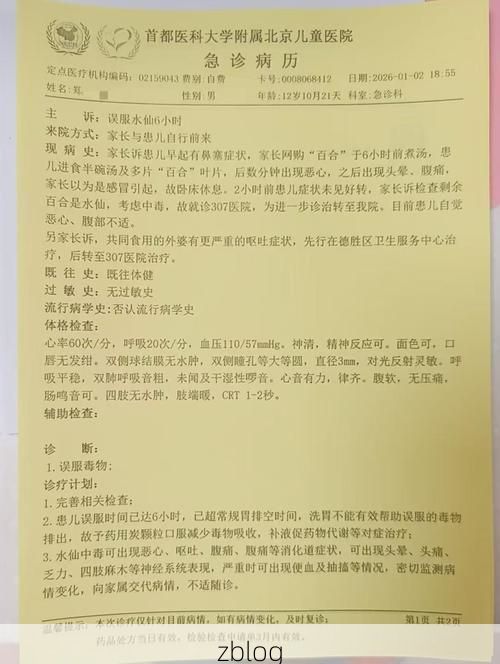 首都医科大学附属北京儿童医院
急诊病历
定点医疗机构编码：02159043 费别：自费 卡号：0008068412 日期：2026-01-02 18:55
姓名：郑 性别：男 年龄：12岁10月21天 科室：急诊科
主 诉：误服水仙6小时
来院方式：家长与患儿自行前来
现 病 史：家长诉患儿早起有鼻塞症状，家长网购“百合”于6小时前煮汤，患
儿进食半碗汤及多片“百合”叶片，后数分钟出现恶心，之后出现头晕、腹痛，
家长以为是感冒引起，故卧床休息。2小时前患儿症状未见好转，家长诉检查剩余
百合是水仙，考虑中毒，故就诊307医院，为进一步诊治转至我院。目前患儿自觉
恶心、腹部不适。
另家长诉，共同食用的外婆有更严重的呕吐症状，先行在德胜区卫生服务中心治
疗，后转至307医院治疗。
既 往 史：既往体健
过 敏 史：无过敏史
流行病学史:否认流行病学史
体格检查：
心率60次/分，呼吸20次/分，血压110/57mmHg。神清，精神反应可。面色可。口
唇无发绀。双侧球结膜无水肿，双侧瞳孔等大等圆，直径3mm，对光反射灵敏。呼
吸平稳，双肺呼吸音粗，未闻及干湿性啰音。心音有力，律齐。腹软，无压痛，
肠鸣音可。四肢无水肿，肢端暖，CRT 1-2秒。
辅助检查：
诊 断：
1.误服毒物;
诊疗计划：
1.完善相关检查；
2.患儿误服时间已达6小时，已超常规胃排空时间，洗胃不能有效帮助误服的毒物
排出，故予药用炭颗粒口服减少毒物吸收，补液促药物代谢等对症治疗；
3.水仙中毒可出现恶心、呕吐、腹痛、腹痛等消化道症状，可出现头晕、头痛、
乏力、四肢麻木等神经系统表现，严重时可出现便血及抽搐等情况，密切监测病
情变化，向家属交代病情，不适随诊。
温馨提示：本次诊疗仅针对目前病情，如有病情变化，及时复诊； 第1页 共2页
药品处方当日有效。检验检查申请单3月内有效。
zblog